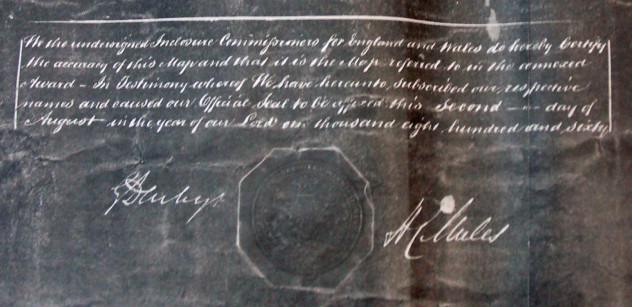 We the undersigned Inclosure Commissioners for England and Wales do hereby Certify
the accuracy of this Map and that it is the Map referred to in the annexed
Award – In Testimony whereof We have hereunto, subscribed our, respective
names and caused our Official Seal to be affixed this Second — day of
August in the year of our Lord one thousand eight, hundred and sixty
A C Mules